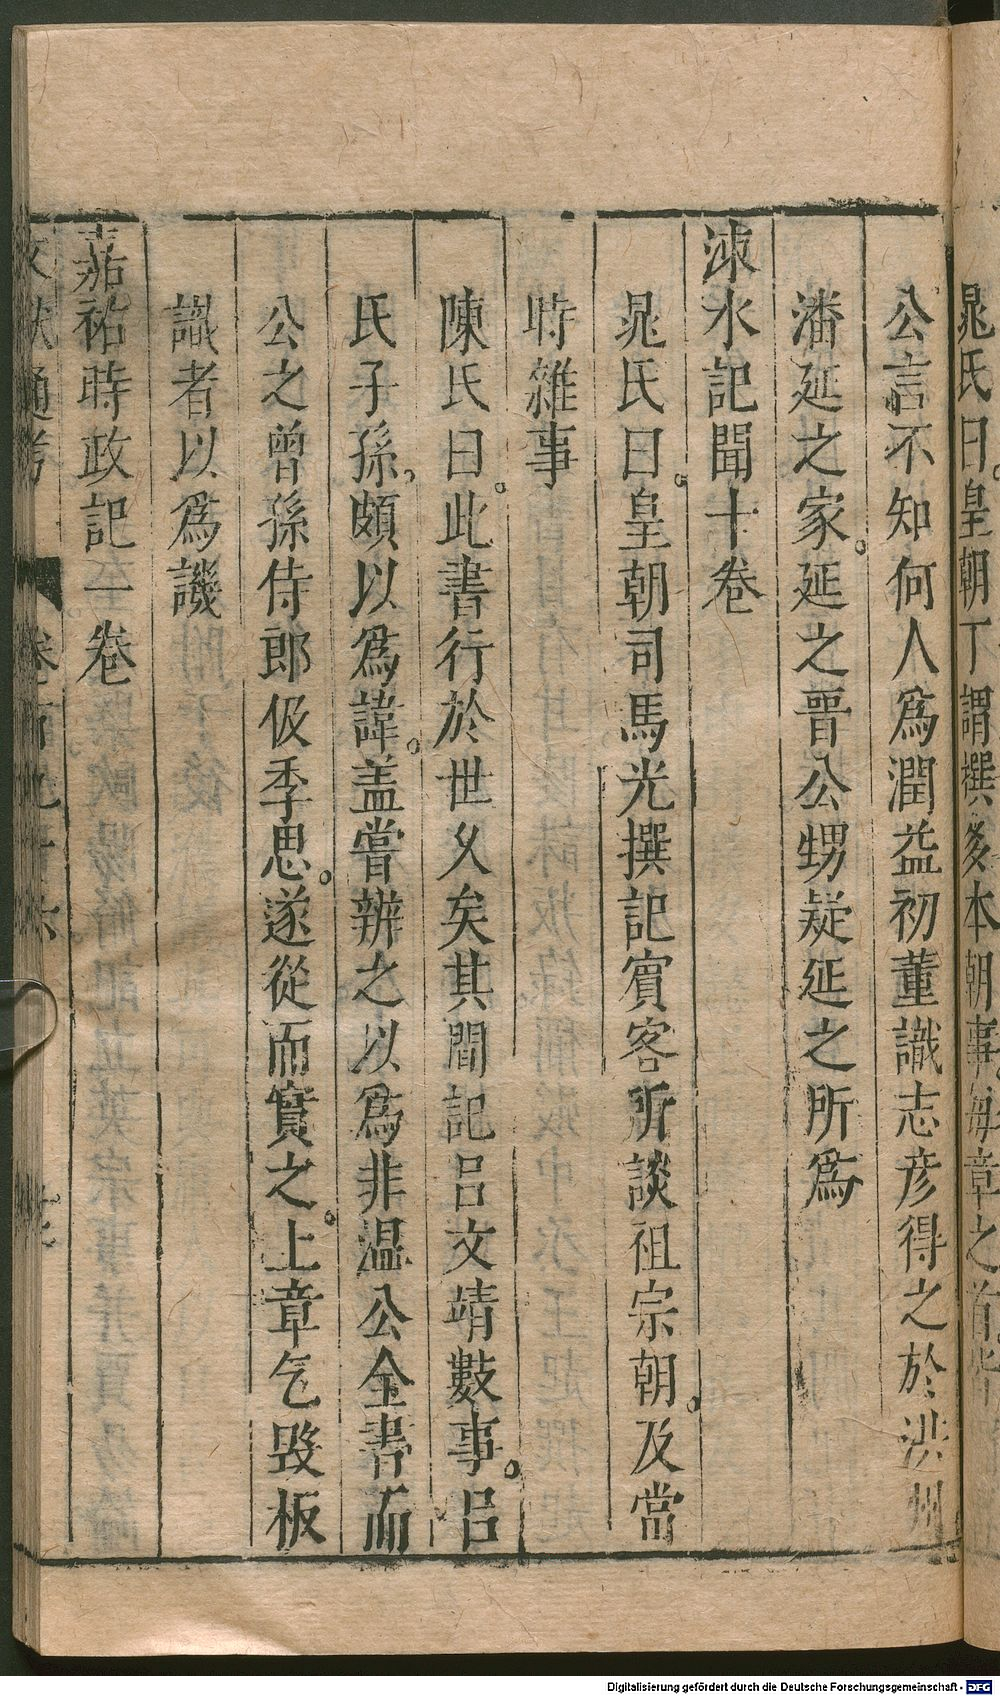 晁氏曰皇朝丁謂撰多本朝事每章之首皆
公言不知何人爲潤益初董識志彦得之於洪州
潘延之家延之晋公甥疑延之所爲
涑水記聞十卷
晁氏曰皇朝司馬光撰記賓客所談祖宗朝及當
時雜事
陳氏曰此書行於世久矣其間記呂文靖數事呂
氏子孫頗以爲諱盖嘗辨之以爲非温公全書而
公之曾孫侍郎伋季思遂從而實之上章乞毁板
識者以爲譏
嘉祐時政記一卷
文獻通考 卷一百九十六
Digitalisierung gefördert durch die Deutsche Forschungsgemeinschaft - DFG